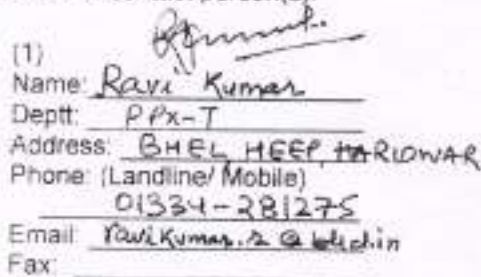 (1)
Name: Ravi Kumar
Deptt: PPX-T
Address: BHEL, HEEP, HARIDWAR
Phone: (Landline/ Mobile)
01334-281275
Email:
Fax: